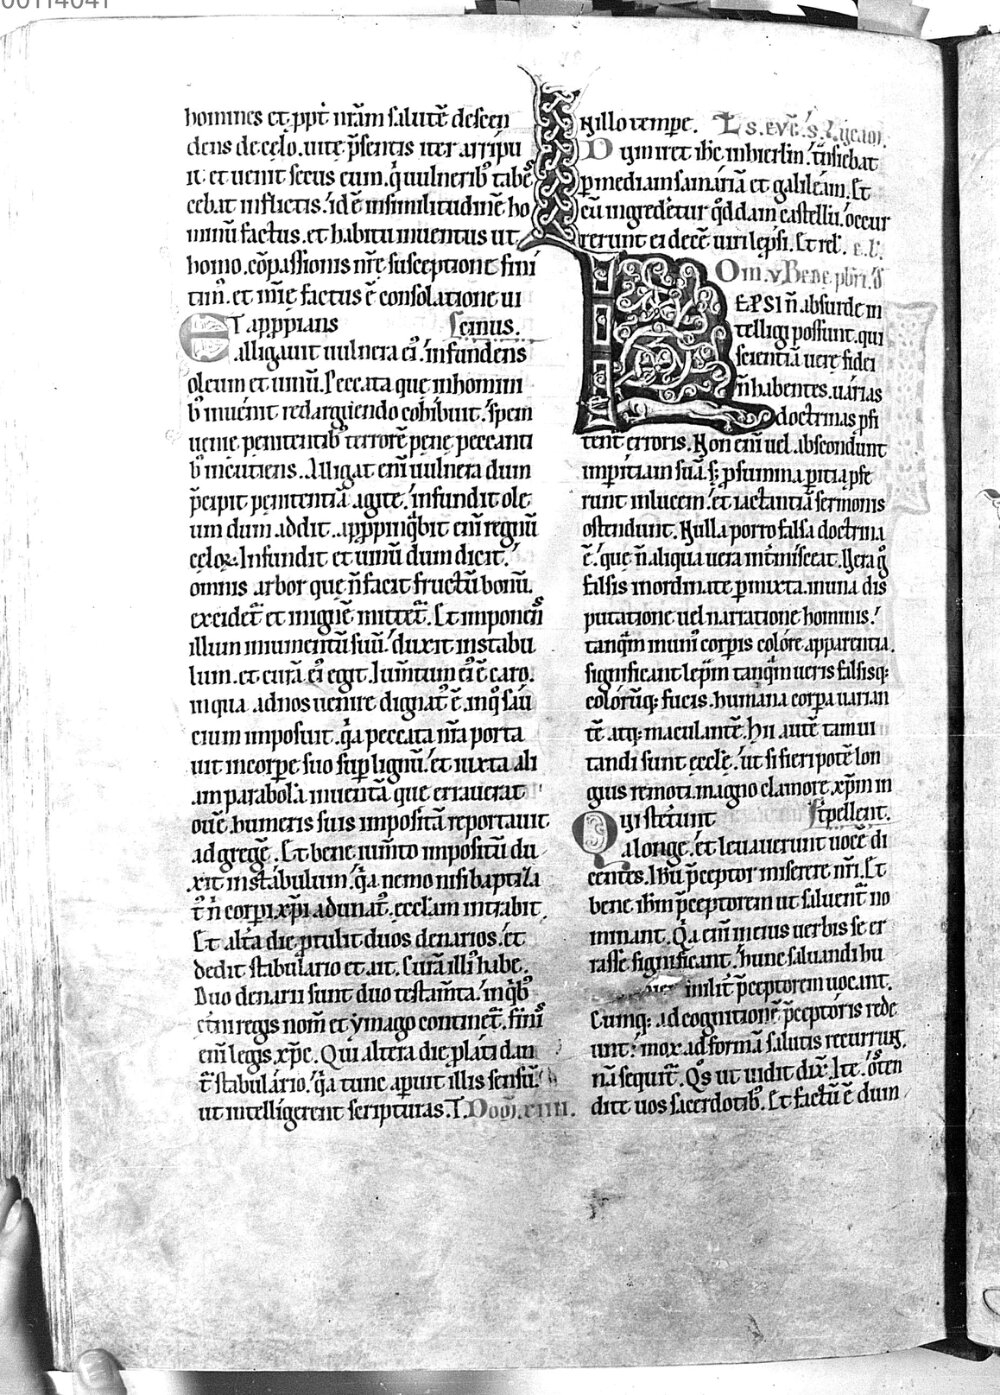 homines et ppt nr̄am salutē descen
dens de celo. uite p̄sentis iter arripu
it. et uenit secus eum. q̇ uulnerib; tabes
cebat inflictis. id ē insimilitudinē ho
minū factus. et habitu inuentus ut
homo. cōpassionis nr̄e susceptione fini
tim̄. et mīe factus ē consolatione ui
cinus.
Et apppians
alligauit uulnera ei᷒. infundens
oleum et uinū. Peccata que in homini
b; inuenit redarguendo cohibuit. spem
uenie penitentib; terrorē pene peccanti
b; incutiens. Alligat eni᷒ uulnera dum
p̄cipit penitentiā agite. infundit ole
um dum addit. appropinq̇bit eni᷒ regnū
celoꝝ. Infundit et uinū dum dicit.
omnis arbor que n̄ facit fructū bonū.
excidet᷑ et in ignē mittet᷑. Et imponens
illum in iumentū suū. duxit in stabu
lum. et curā ei᷒ egit. Iumtum ei᷒ ē caro.
in qua ad nos uenire dignat᷑ ē. in q̇ sau
cium imposuit. q̇a peccata nr̄a porta
uit in corpe suo sup lignū. et iuxta ali
am parabolā inuentā que errauerat
ouē. humeris suis impositā reportauit
ad gregē. Et bene iumto impositū du
xit in stabulum. q̇a nemo nisi baptiza
t᷒ n̄ corpi xp̄i adunat᷒. eccłam intrabit.
Et altā die. ptulit duos denarios. et
dedit stabulario et ait. Curā illi᷒ habe.
Duo denarii sunt duo testam̄ta. in q̇b;
et̄ni regis nom̄ et ymago continet᷑. finis
eni᷒ legis xp̄c. Qui altera die plati dan
t᷑ stabulario. q̇a tunc apuit illis sensū.
ut intelligerent scripturas. T. Dom̄. xiiii.
In illo tempe. Łs. evḡ. s. Lucam.
Dum iret ih̄c in hierłm. t̄nsiebat
p mediam samariā et galileam. Et
cū ingrederetur q̇ddam castellū. occur
rerunt ei decē uiri lepsi. Et reł. e. l.
Om. v. Bene. pbri. d
LEPSI n̄ absurde in
telligi possunt. qui
scientiā uere fidei
n̄ habentes. uarias
doctrinas pfi
tent᷑ erroris. Non eni᷒ uel abscondunt
impitiam suā. s; p summa pitia pfe
runt in lucem. et iactantiā sermonis
ostendunt. Nulla porro falsa doctrina
ē. que n̄ aliqua uera int̄misceat. Uera ḡ
falsis inordinate pmixta. in una dis
putatione uel narratione hominis.
tanqm̄ in uni᷒ corpis colore apparentia.
significant leprā tanqm̄ ueris falsisq;
colorūq; fucis. humana corpa uarian
tē atq; maculantē. Hii autē tam ui
tandi sunt eccłe. ut si fieri potē lon
gius remoti. magno clamore xp̄m in
t̄pellent.
Qui steterunt
a longe. et leuauerunt uocē di
centes. Ihū p̄ceptor miserere nr̄i. Et
bene ih̄m p̄ceptorem ut saluent᷑ no
minant. Q̇a eni᷒ in eius uerbis se er
rasse significant. hunc saluandi hu
militer p̄ceptorem uocant.
Cumq; ad cognitionē p̄ceptoris rede
unt. mox ad formā salutis recurrunt.
nā sequit᷑. Q̇s ut uidit dix̄. Ite. osten
dite uos sacerdotib;. Et factū ē dum